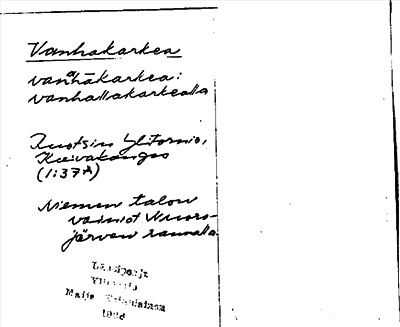 Vanhakarkea
vanhakarkea:
vanhallakarkealla
Ruotsin Ylitornio,
Kuivakangas
(1:37A)
Niemen talon
vainiot Vuoro-
järven rannalla.
Länsipohja
Ylitornio
Maija